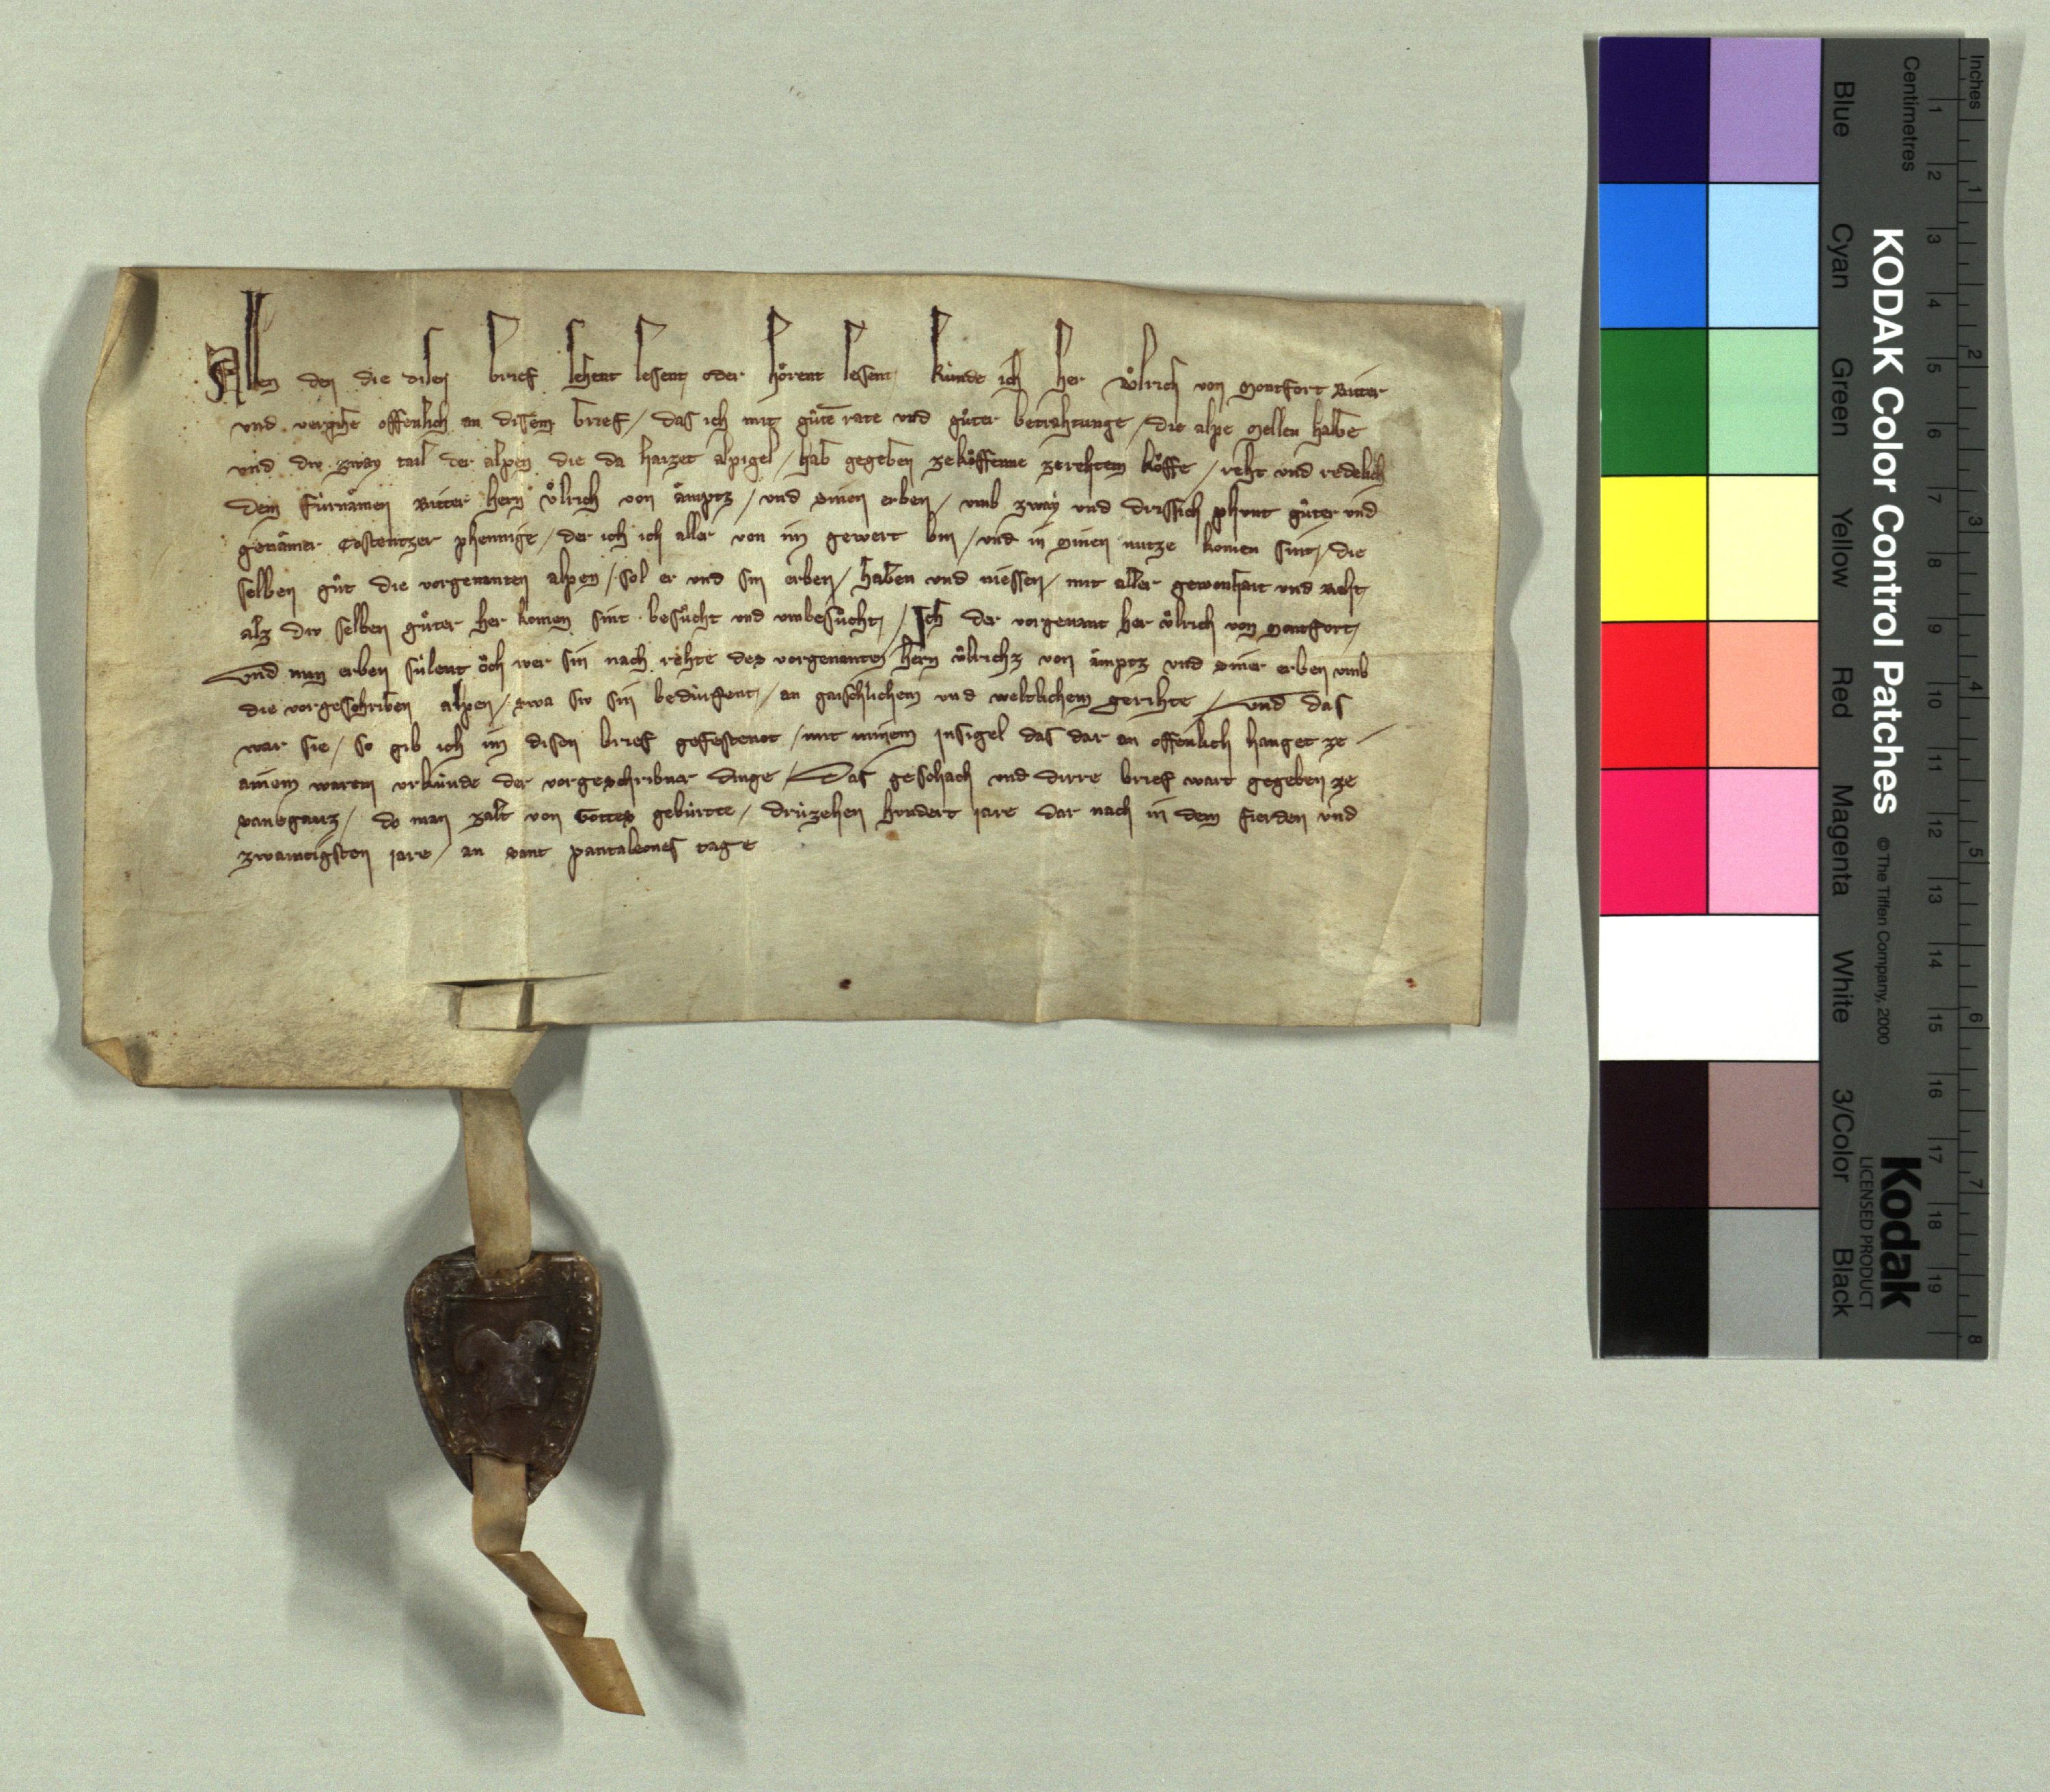 Allen den die disen brief sehent lesent oder hörent lesent künde ich her Uͦlrich von Montfort Ritter
und vergihe offenlich an disem brief / das ich mit guͦte rate und guͦter betrahtunge / die alpe Mellen halbe
und die zway tail der alpen die da haizet alpigel / hab gegeben zeköffenne zerehtem köffe / reht und redelich
dem fürnämen Ritter hern Uͦlrich von ämptz / und sinen erben / umb zway und drissich phunt guͦter und
genämer Costentzer phenninge / der ich ich aller von im gewert bin / und in minen nutze komen sint / die
selben guͦt die vorgenanten alpen / sol er und sin erben / haben und niessen / mit aller gewonhait und Reht
alz diu selben guͦter her komen sint besuͦcht und umbesuͦcht / Ich der vorgenant her uͦlrich von Montfort /
und min erben sülent öch wer sin nach rehte des vorgenanten hern uͦlrichz von ämptz und siner erben umb
die vorgeschriben alpen / swa siu sin bedürffent / an gaischlichem und weltlichem gerihte / und das
war sie / so gib ich im disen brief gefestenot / mit minem insigel das dar an offenlich hanget ze
ainem waren urkünde der vorgeschribner dinge / Das geschach und dirre brief wart gegeben ze
Sanbganz / do man zalt von Gottes gebürtte / drüzehen hundert iare dar nach in dem fierden und
zwaintigsten iare / an sant pantaleones tage
Inches
Centimetres
1 2 3 4 5 6 7 8 9 10 11 12 13 14 15 16 17 18 19
1 2 3 4 5 6 7 8
KODAK Color Control Patches © The Tiffen Company, 2000
Kodak
LICENSED PRODUCT
Blue Cyan Green Yellow Red Magenta White 3/Color Black